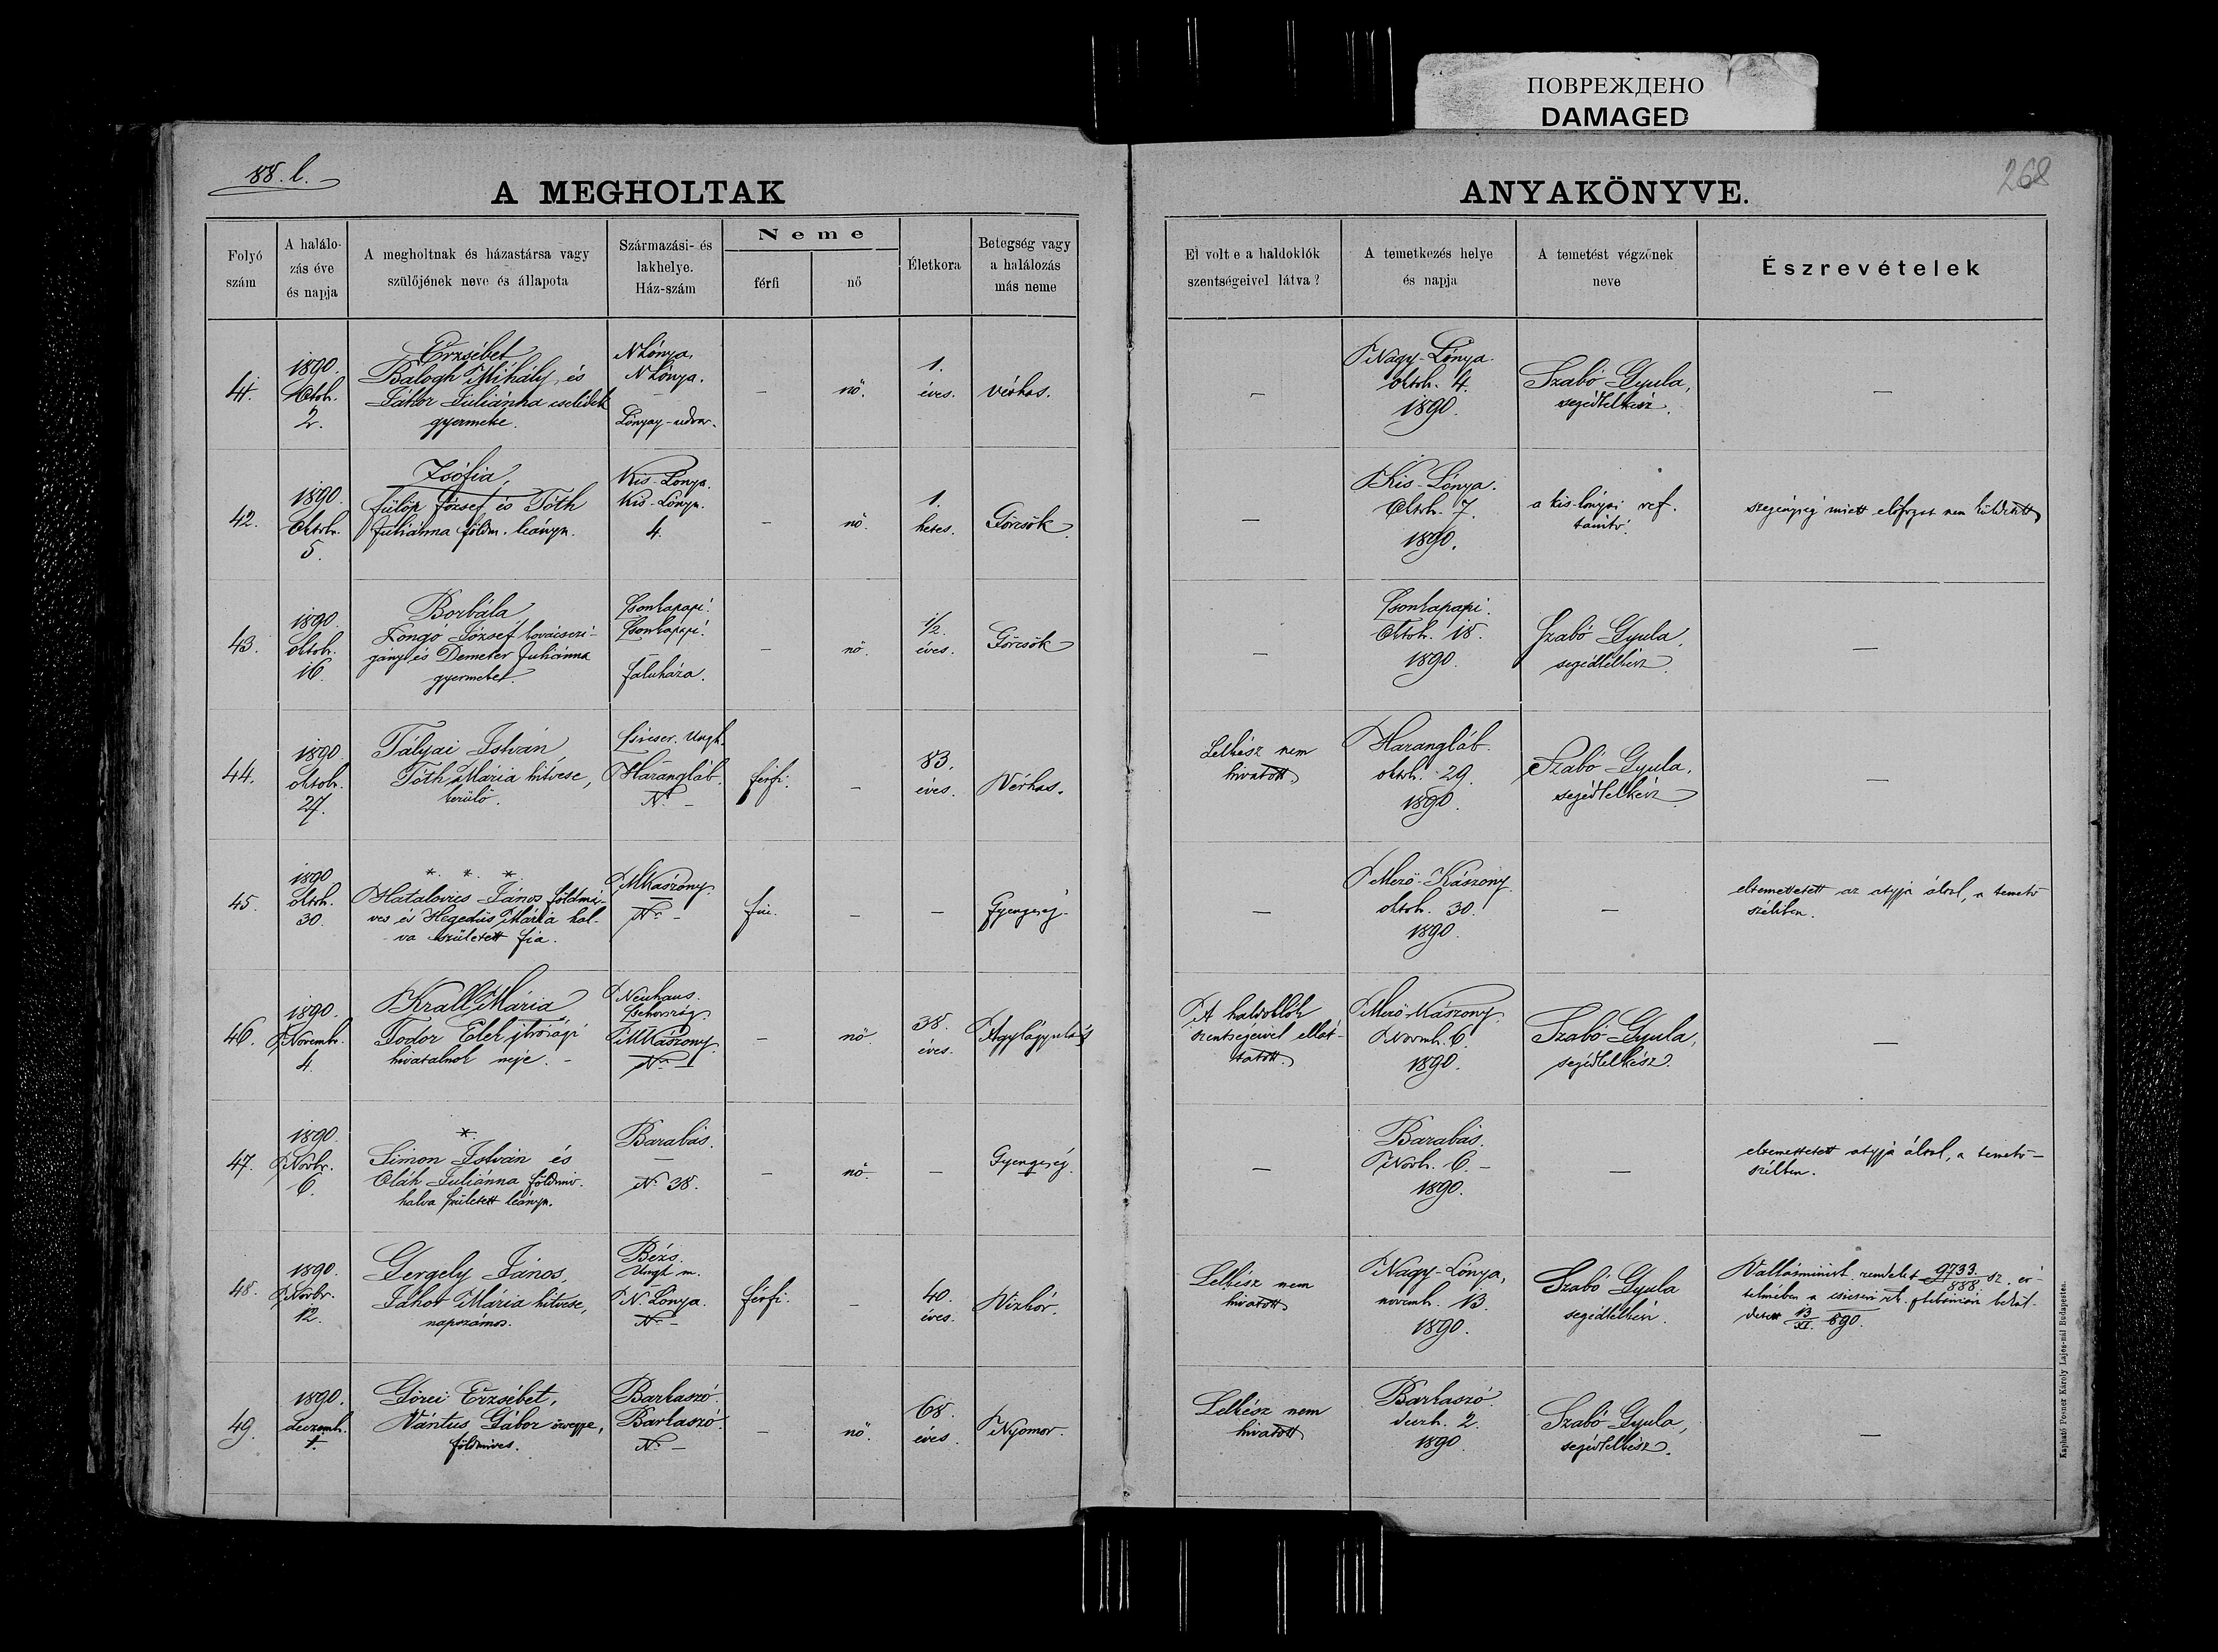 ПОВРЕЖДЕНО
DAMAGED
88. l.
268
A MEGHOLTAK
ANYAKÖNYVE.
Folyó
szám
A halálo-
zás éve
és napja
A megholtnak és házastársa vagy
szülőjének neve és állapota
Származási- és
lakhelye.
Ház-szám
Neme
férfi
nő
Életkora
Betegség vagy
a halálozás
más neme
El volt e a haldoklók
szentségeivel látva?
A temetkezés helye
és napja
A temetést végzőnek
neve
Észrevételek
41.
1890.
Oktob.
2.
Erzsébet
Balogh Mihály, és
Jákor Juliánna cselédek
gyermeke.
N Lónya.
N Lónya.
–
Lónyay-udvar.
–
nő.
1.
éves.
vérhas.
–
Nagy-Lónya.
oktob. 4.
1890.
Szabó Gyula,
segédlelkész.
–
42.
1890.
Oktob.
5.
Zsófia,
Fülöp József és Tóth
Juliánna földm. leánya.
Kis-Lónya.
Kis-Lónya.
4.
–
nő.
1.
hetes.
Görcsök.
–
Kis-Lónya.
Oktob. 7.
1890.
a kis-lónyai ref.
tanító.
szegénység miatt előfogat nem küldetett
43.
1890.
oktob.
16.
Borbála,
Longó József kovácsczi-
gány és Demeter Juliánna
gyermeket.
Csonkapapi.
Csonkapapi.
–
faluháza.
–
nő.
1/2.
éves.
Görcsök
–
Csonkapapi.
Oktob. 18.
1890.
Szabó Gyula,
segédlelkész
–
44.
1890
oktob.
27.
Tályai István,
Tóth Mária hitvese,
kerülő.
Csicser. Ungh.
Harangláb.
No –
férfi.
–
83.
éves.
Vérhas.
Lelkész nem
hivatott
Harangláb.
oktob. 29.
1890.
Szabó Gyula,
segédlelkész
–
45.
1890
oktob.
30.
*. *. *.
Hatalovics János földmi-
ves és Hegedüs Mária hal-
va született fia.
MKászony.
No –
fiú.
–
–
Gyengeség.
–
Mező-Kászony.
oktob. 30.
1890.
–
eltemettetett az atyja által, a temető
szélében.
46.
1890.
Novemb.
4.
Krall Mária
Fodor Elek jbirósági
hivatalnok neje. –
Neuhaus.
Csehország.
MKászony.
No –
–
nő.
38.
éves.
Agylágyulás
A haldoklók
szentségeivel ellát-
tatott.
Mező-Kászony.
Novemb. 6.
1890.
Szabó Gyula,
segédlelkész.
–
47.
1890.
Novbr.
6.
*.
Simon István és
Oláh Juliánna földmiv.
halva született leánya.
Barabás.
–
No 38.
–
nő.
–
Gyengeség.
–
Barabás.
Novb. 6. –
1890.
–
eltemettetett atyja által, a temető-
szélben.
48.
1890.
Novbr.
12.
Gergely János,
Jákor Mária hitvese,
napszámos.
Bézs.
Ungh m.
N. Lónya.
No –
férfi.
–
40.
éves.
Vizkór.
Lelkész nem
hivatott
Nagy-Lónya,
novemb. 13.
1890.
Szabó Gyula
segédlelkész.
Vallásminist. rendelet 9733/888 sz. ér-
telmében a csicseri rk. plébániára bekül-
detett 13/XI. 890.
49.
1890.
Deczemb.
1.
Görei Erzsébet,
Vántus Gábor özvegye,
földmives.
Barkaszó.
Barkaszó.
No –
–
nő.
68.
éves.
Nyomor.
Lelkész nem
hivatott
Barkaszó.
deczb. 2.
1890.
Szabó Gyula,
segédlelkész.
–
Kapható Posner Károly Lajos-nál Budapesten.